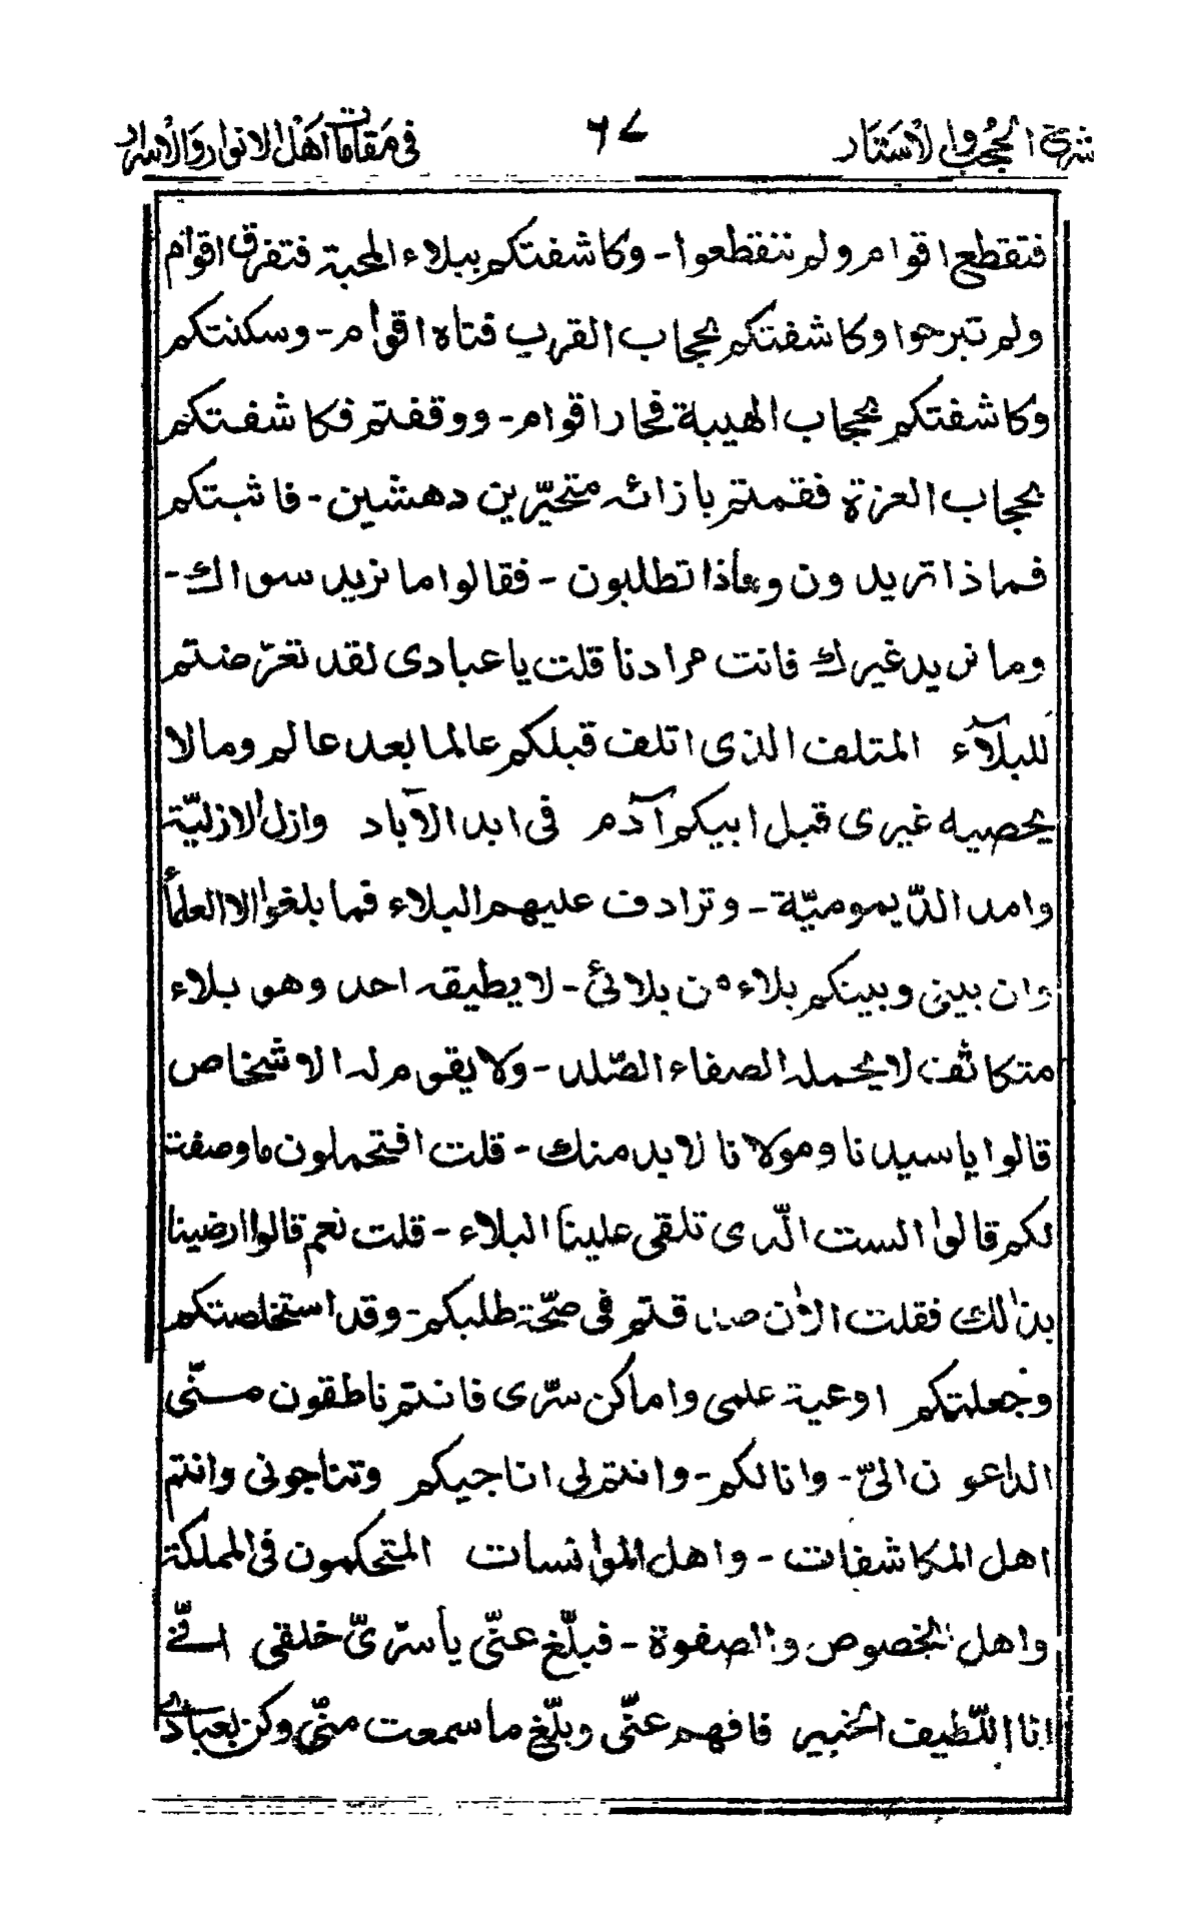 شرح الحُجُب والأستار ٦٧ فى مَقامَات اَهْل الانوار وَالْاسرار
فتقطع اقوام ولم تنقطعوا - وكاشفتكم ببلاء المحبة فتفرق اقوام
ولم تبرحوا وكاشفتكم بحجاب القرب فتاه اقوام - وسكنتكم
وكاشفتكم بحجاب الهيبة فحار اقوام - ووقفتم فكاشفتكم
بحجاب العزة فقمتم بازائه متحيّرين دهشين - فاثبتكم
فماذا تريدون وماذا تطلبون - فقالوا ما نريد سواك -
وما نريد غيرك فانت مرادنا قلت يا عبادى لقد تعرّضتم
للبلآء المتلف الذى اتلف قبلكم عالما بعد عالم ومالا
يحصيه غيرى قبل ابيكم آدم فى ابد الآباد وازل الازليّة
وامد الدّيموميّة - وترادف عليهم البلاء فما بلغوا الا العلمأ
وان بينى وبينكم بلاء من بلائى - لا يطيقه احد وهو بلاء
متكاثف لا يحمله الصفاء الصّلد - ولا يقوم له الاشخاص
قالوا يا سيدنا ومولانا لابد منك - قلت افتحملون ما وصفت
لكم قالوا الست الّذى تلقى علينا البلاء - قلت نعم قالوا ارضينا
بذالك فقلت الاٰن صدقتم فى صحّة طلبكم - وقد استخلصتكم
وجعلتكم اوعية علمى واماكن سرّى فانتم ناطقون منّى
الداعون الىّ - وانا لكم - وانتم لى اناجيكم وتناجونى وانتم
اهل المكاشفات - واهل الموأنسات المتحكمون فى المملكة
واهل الخصوص والصفوة - فبلّغ عنّى يا سرّىّ خلقى انّى
انا اللّطيف الخبير فافهم عنّى وبلّغ ما سمعت منّى وكن بعبادى